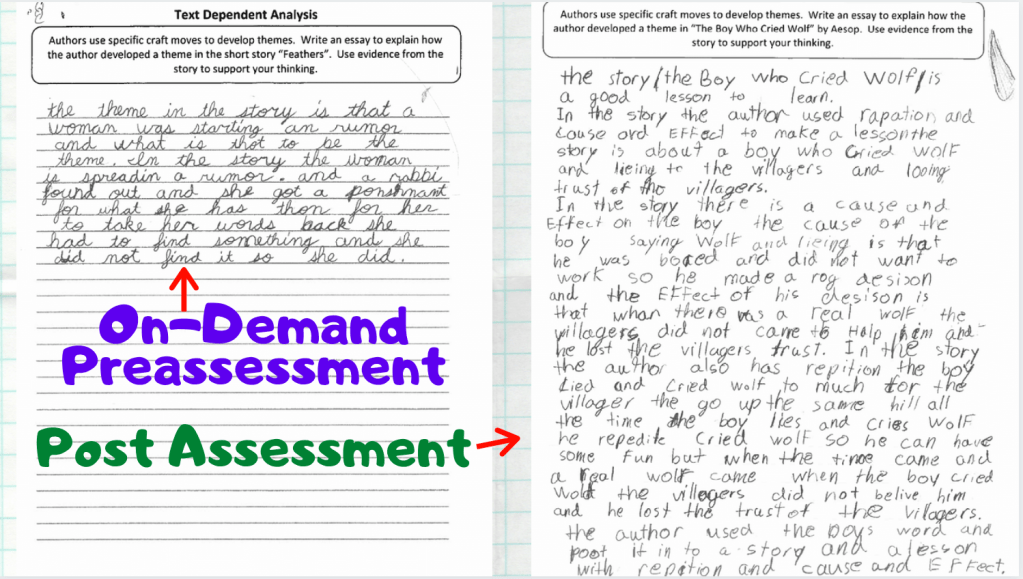 Text Dependent Analysis
Authors use specific craft moves to develop themes. Write an essay to explain how
the author developed a theme in the short story "Feathers". Use evidence from the
story to support your thinking.
the theme in the story is that a
woman was starting an rumor
and what is thot to be the
theme. In the story the woman
is spreadin a rumor. and a rabbi
found out and she got a ponshnant
for what she has thon for her
to take her words back she
had to find something and she
did not find it so she did.
On-Demand
Preassessment
Post Assessment
Authors use specific craft moves to develop themes. Write an essay to explain how the
author developed a theme in "The Boy Who Cried Wolf" by Aesop. Use evidence from the
story to support your thinking.
the story/the Boy who Cried Wolf/is
a good lesson to learn.
In the story the author used rapation and
Couse ord EFFect to make a lesson the
story is about a boy who Cried WOLF
and lieing to the villagers and looing
trust of tho villagers.
In the story there is a cause and
Effect on the boy the cause of the
boy saying Wolf and lieing is that
he was bored and did not want to
work so he made a rog desison
and the EFFect of his desison is
that whan there was a real wolf the
villagers did not came to Help him and
he lost the villagers trust. In the story
the author also has repition the boy
Lied and Cried wolf to much for the
villager the go up the same hill all
the time the boy lies and cries Wolf
he repedile Cried wolf so he can have
some fun but when the time came and
a real wolf came when the boy cried
Wolf the villegers did not belive him
and he lost the trust of the villagers.
the author used the boys word and
poot it in to a story and a lesson
with repition and cause and EFFect.